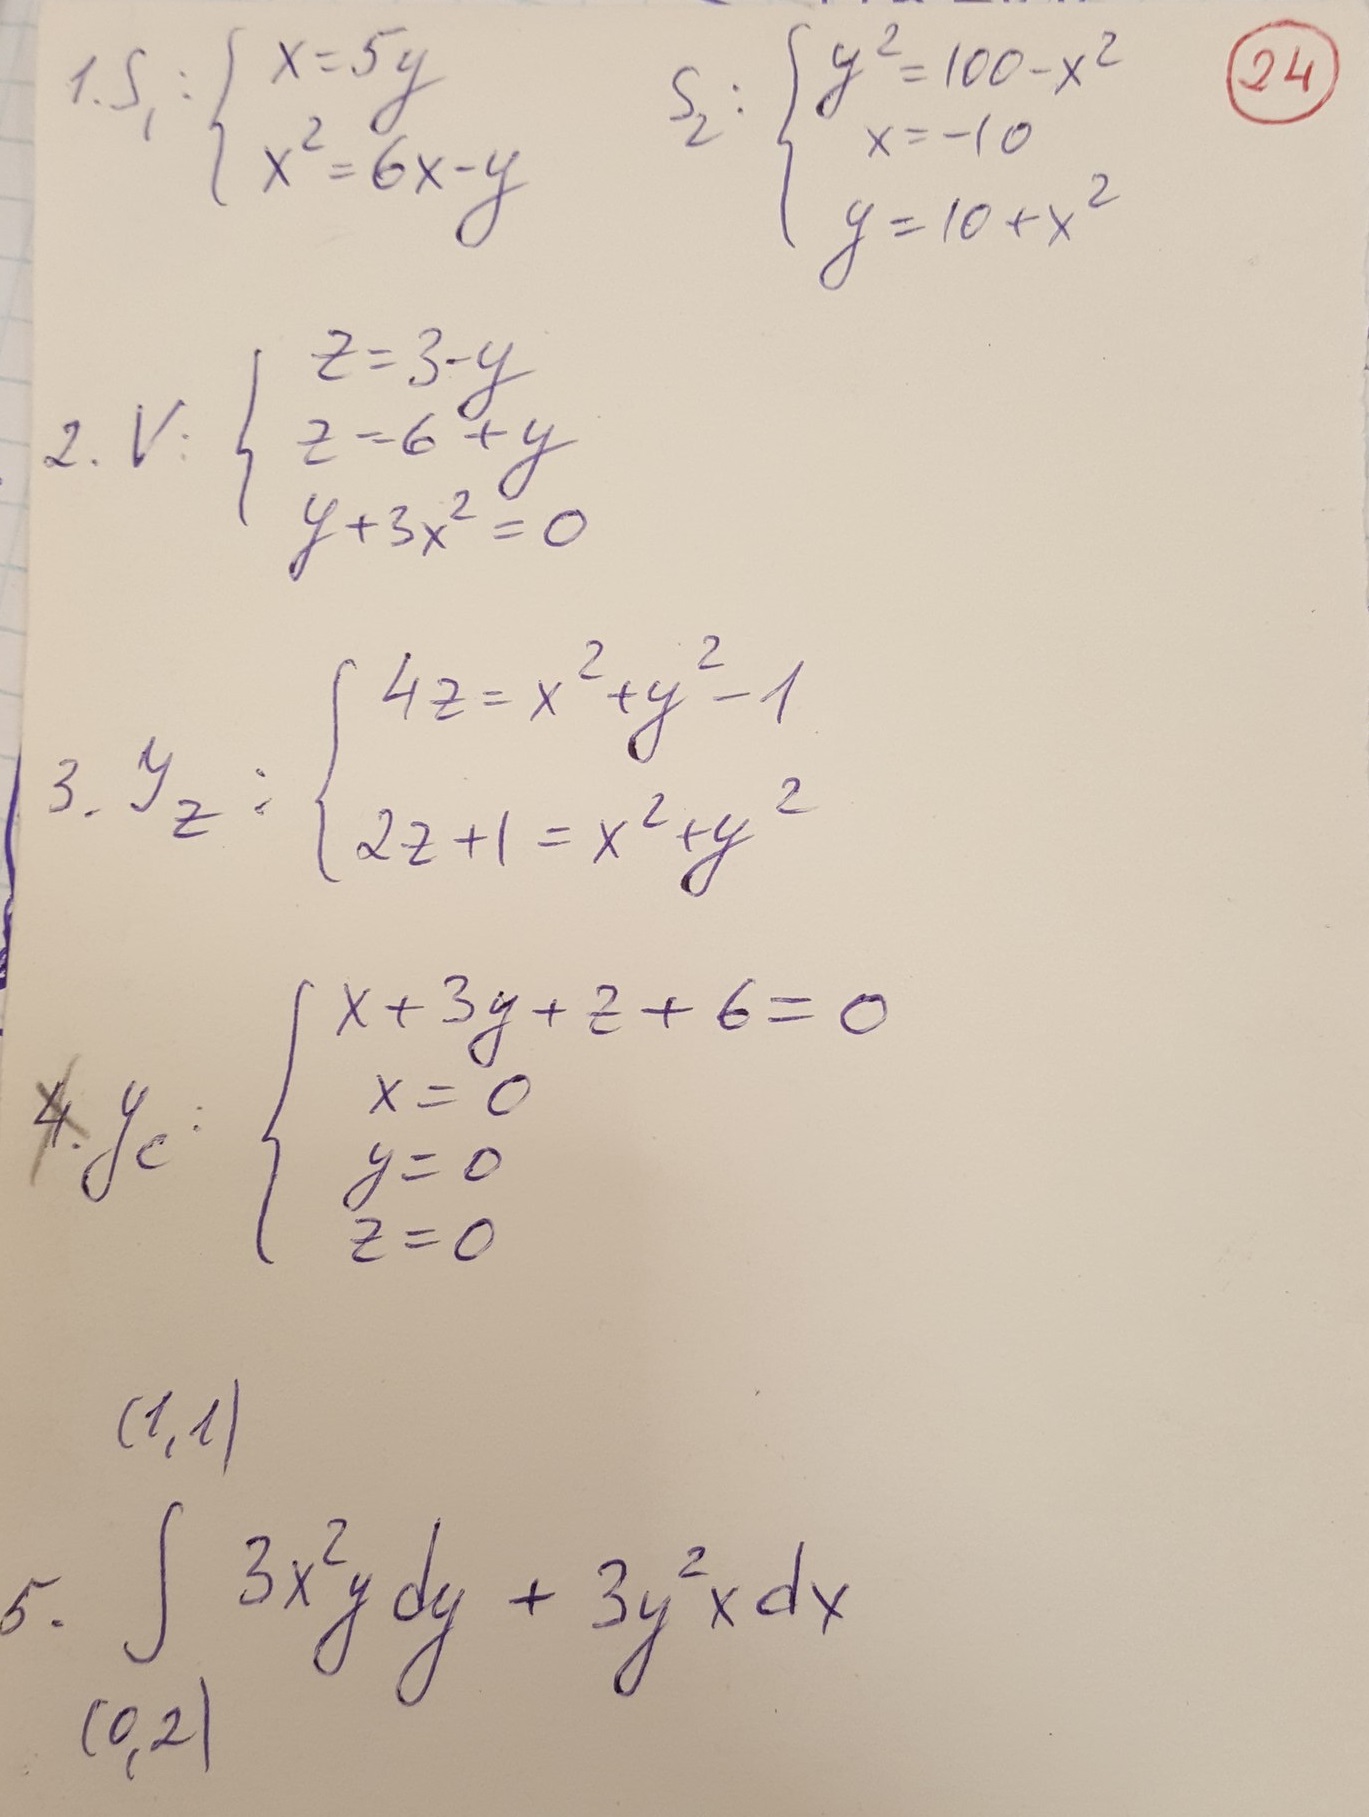 1. S₁: { x = 5y
x² = 6x - y
S₂: { y² = 100 - x²
x = -10
y = 10 + x²
24
2. V: { z = 3 - y
z = 6 + y
y + 3x² = 0
3. y_z: { 4z = x² + y² - 1
2z + 1 = x² + y²
4. y_c: { x + 3y + z + 6 = 0
x = 0
y = 0
z = 0
(1,1)
5. ∫ 3x²y dy + 3y²x dx
(0,2)